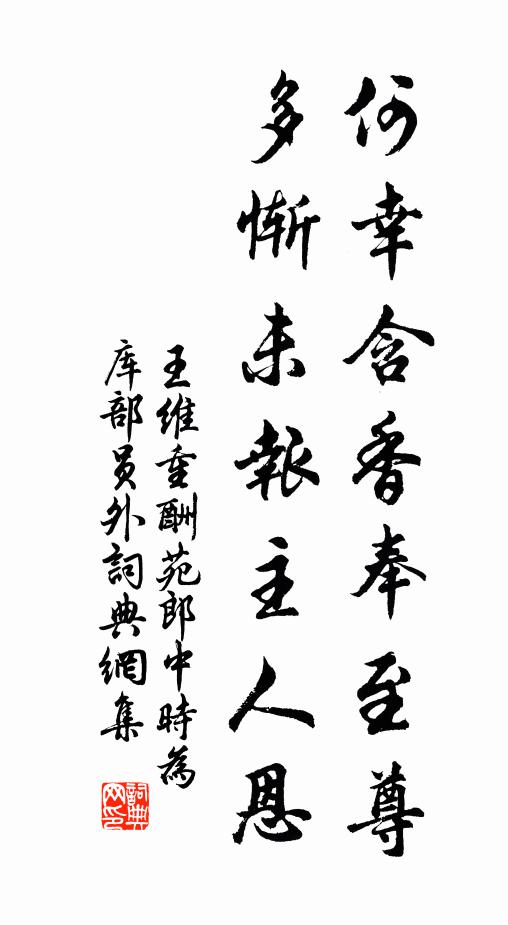 何幸含香奉至尊
多慚未報主人恩
王維重酬苑郎中時為
库部员外詞典網集
詞典网印